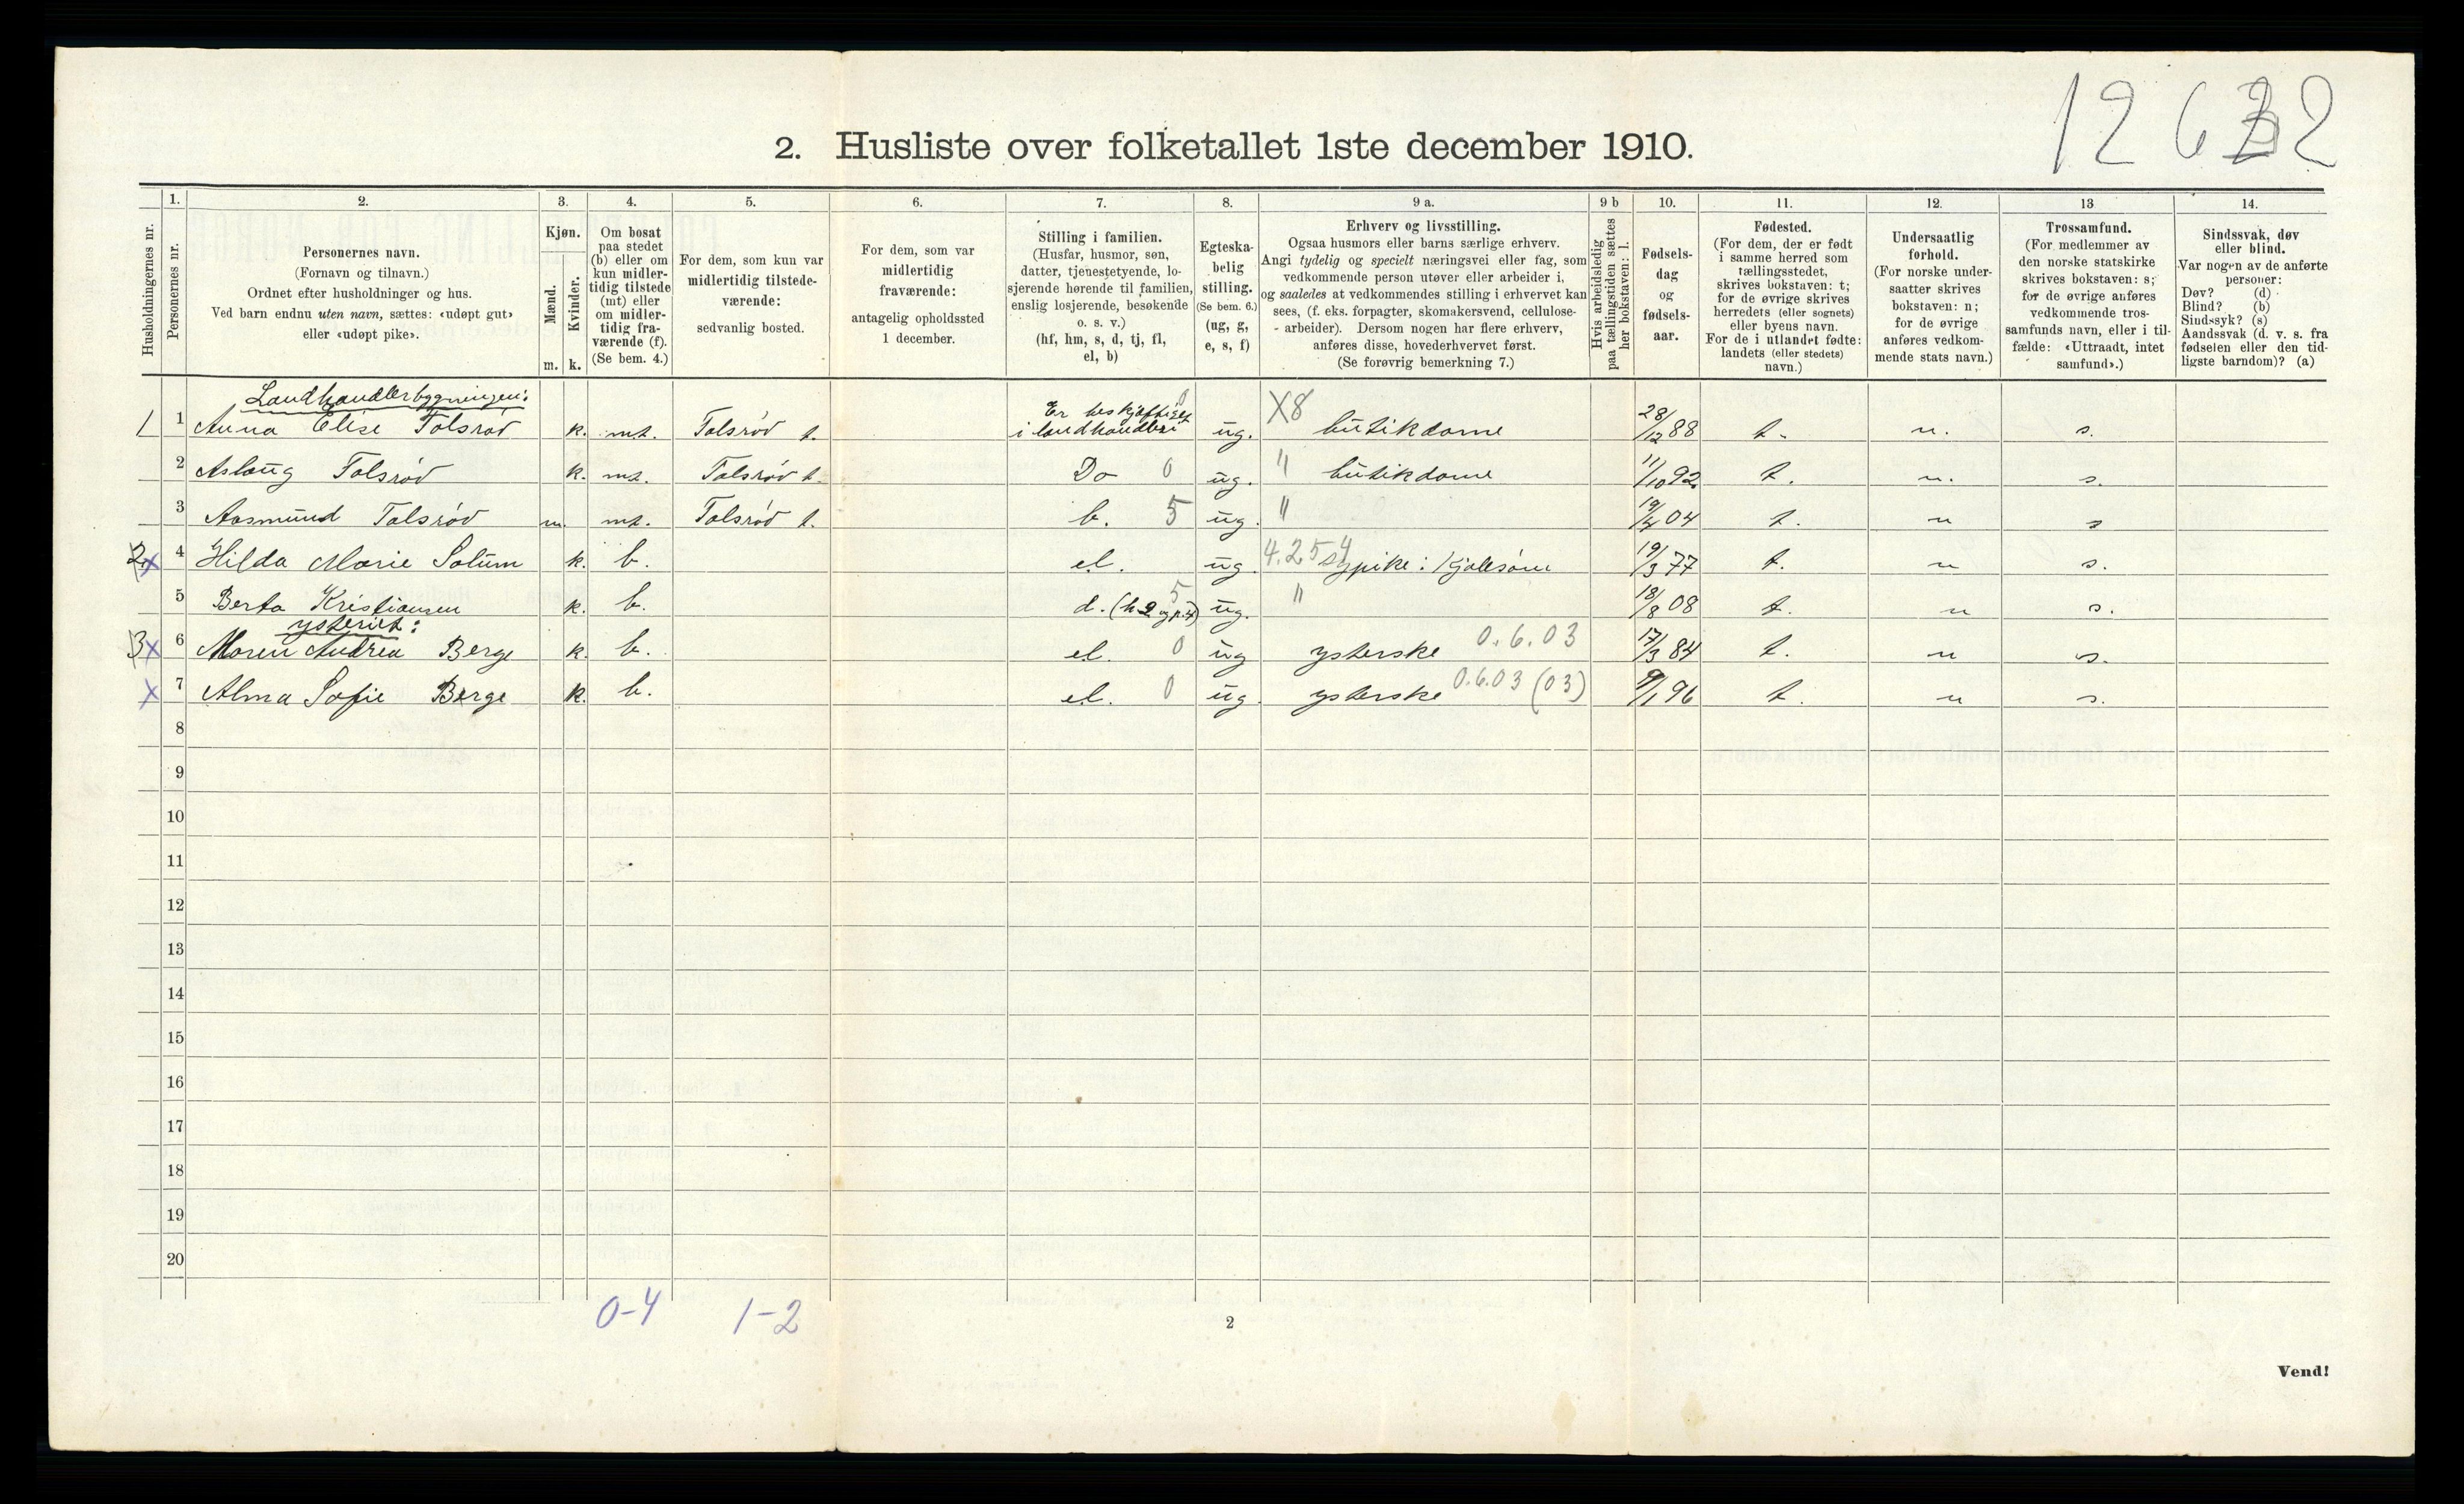 12632
2. Husliste over folketallet 1ste december 1910.
Husholdningernes nr.
1.
Personernes nr.
2.
Personernes navn.
(Fornavn og tilnavn.)
Ordnet efter husholdninger og hus.
Ved barn endnu uten navn, sættes: «udøpt gut»
eller «udøpt pike».
3.
Kjøn.
Mænd.
Kvinder.
m. k.
4.
Om bosat
paa stedet
(b) eller om
kun midler-
tidig tilstede
(mt) eller
om midler-
tidig fra-
værende (f).
(Se bem. 4.)
5.
For dem, som kun var
midlertidig tilstede-
værende:
sedvanlig bosted.
6.
For dem, som var
midlertidig
fraværende:
antagelig opholdssted
1 december.
7.
Stilling i familien.
(Husfar, husmor, søn,
datter, tjenestetyende, lo-
sjerende hørende til familien,
enslig losjerende, besøkende
o. s. v.)
(hf, hm, s, d, tj, fl,
el, b)
8.
Egteska-
belig
stilling.
(Se bem. 6.)
(ug, g,
e, s, f)
9 a.
Erhverv og livsstilling.
Ogsaa husmors eller barns særlige erhverv.
Angi tydelig og specielt næringsvei eller fag, som
vedkommende person utøver eller arbeider i,
og saaledes at vedkommendes stilling i erhvervet kan
sees, (f. eks. forpagter, skomakersvend, cellulose-
arbeider). Dersom nogen har flere erhverv,
anføres disse, hovederhvervet først.
(Se forøvrig bemerkning 7.)
9 b
Hvis arbeidsledig
paa tællingstiden sættes
her bokstaven: l.
10.
Fødsels-
dag
og
fødsels-
aar.
11.
Fødested.
(For dem, der er født
i samme herred som
tællingsstedet,
skrives bokstaven: t;
for de øvrige skrives
herredets (eller sognets)
eller byens navn.
For de i utlandet fødte:
landets (eller stedets)
navn.)
12.
Undersaatlig
forhold.
(For norske under-
saatter skrives
bokstaven: n;
for de øvrige
anføres vedkom-
mende stats navn.)
13
Trossamfund.
(For medlemmer av
den norske statskirke
skrives bokstaven: s;
for de øvrige anføres
vedkommende tros-
samfunds navn, eller i til-
fælde: «Uttraadt, intet
samfund».)
14.
Sindssvak, døv
eller blind.
Var nogen av de anførte
personer:
Døv? (d)
Blind? (b)
Sindssyk? (s)
Aandssvak (d. v. s. fra
fødselen eller den tid-
ligste barndom)? (a)
Landhandlerbygningen:
1 1 Anna Elise Tolsrød k. mt. Tolsrød t. Er beskjæftiget i landhandleri 0 ug. X8 butikdame 28/12 88 t. n. s.
2 Aslaug Tolsrød k. mt. Tolsrød t. Do 0 ug. " butikdame 11/10 92 t. n. s.
3 Aasmund Tolsrød m. mt. Tolsrød t. b. 5 ug. " 19/4 04 t. n s
2 x 4 Hilda Marie Solum k. b. el. ug. 4.254 sypike: kjolesøm 19/3 77 t. n s.
5 Berta Kristiansen k. b. d. (h 2 og p. 4) 5 ug. " 18/8 08 t. n s.
ysteriet:
3 x 6 Maren Andrea Berge k. b. el. 0 ug ysterske 0.6.03 17/3 84 t. n s.
x 7 Alma Sofie Berge k. b. el. 0 ug. ysterske 0.6.03 (03) 9/1 96 t. n s.
8
9
10
11
12
13
14
15
16
17
18
19
20
0-4 1-2
2
Vend!